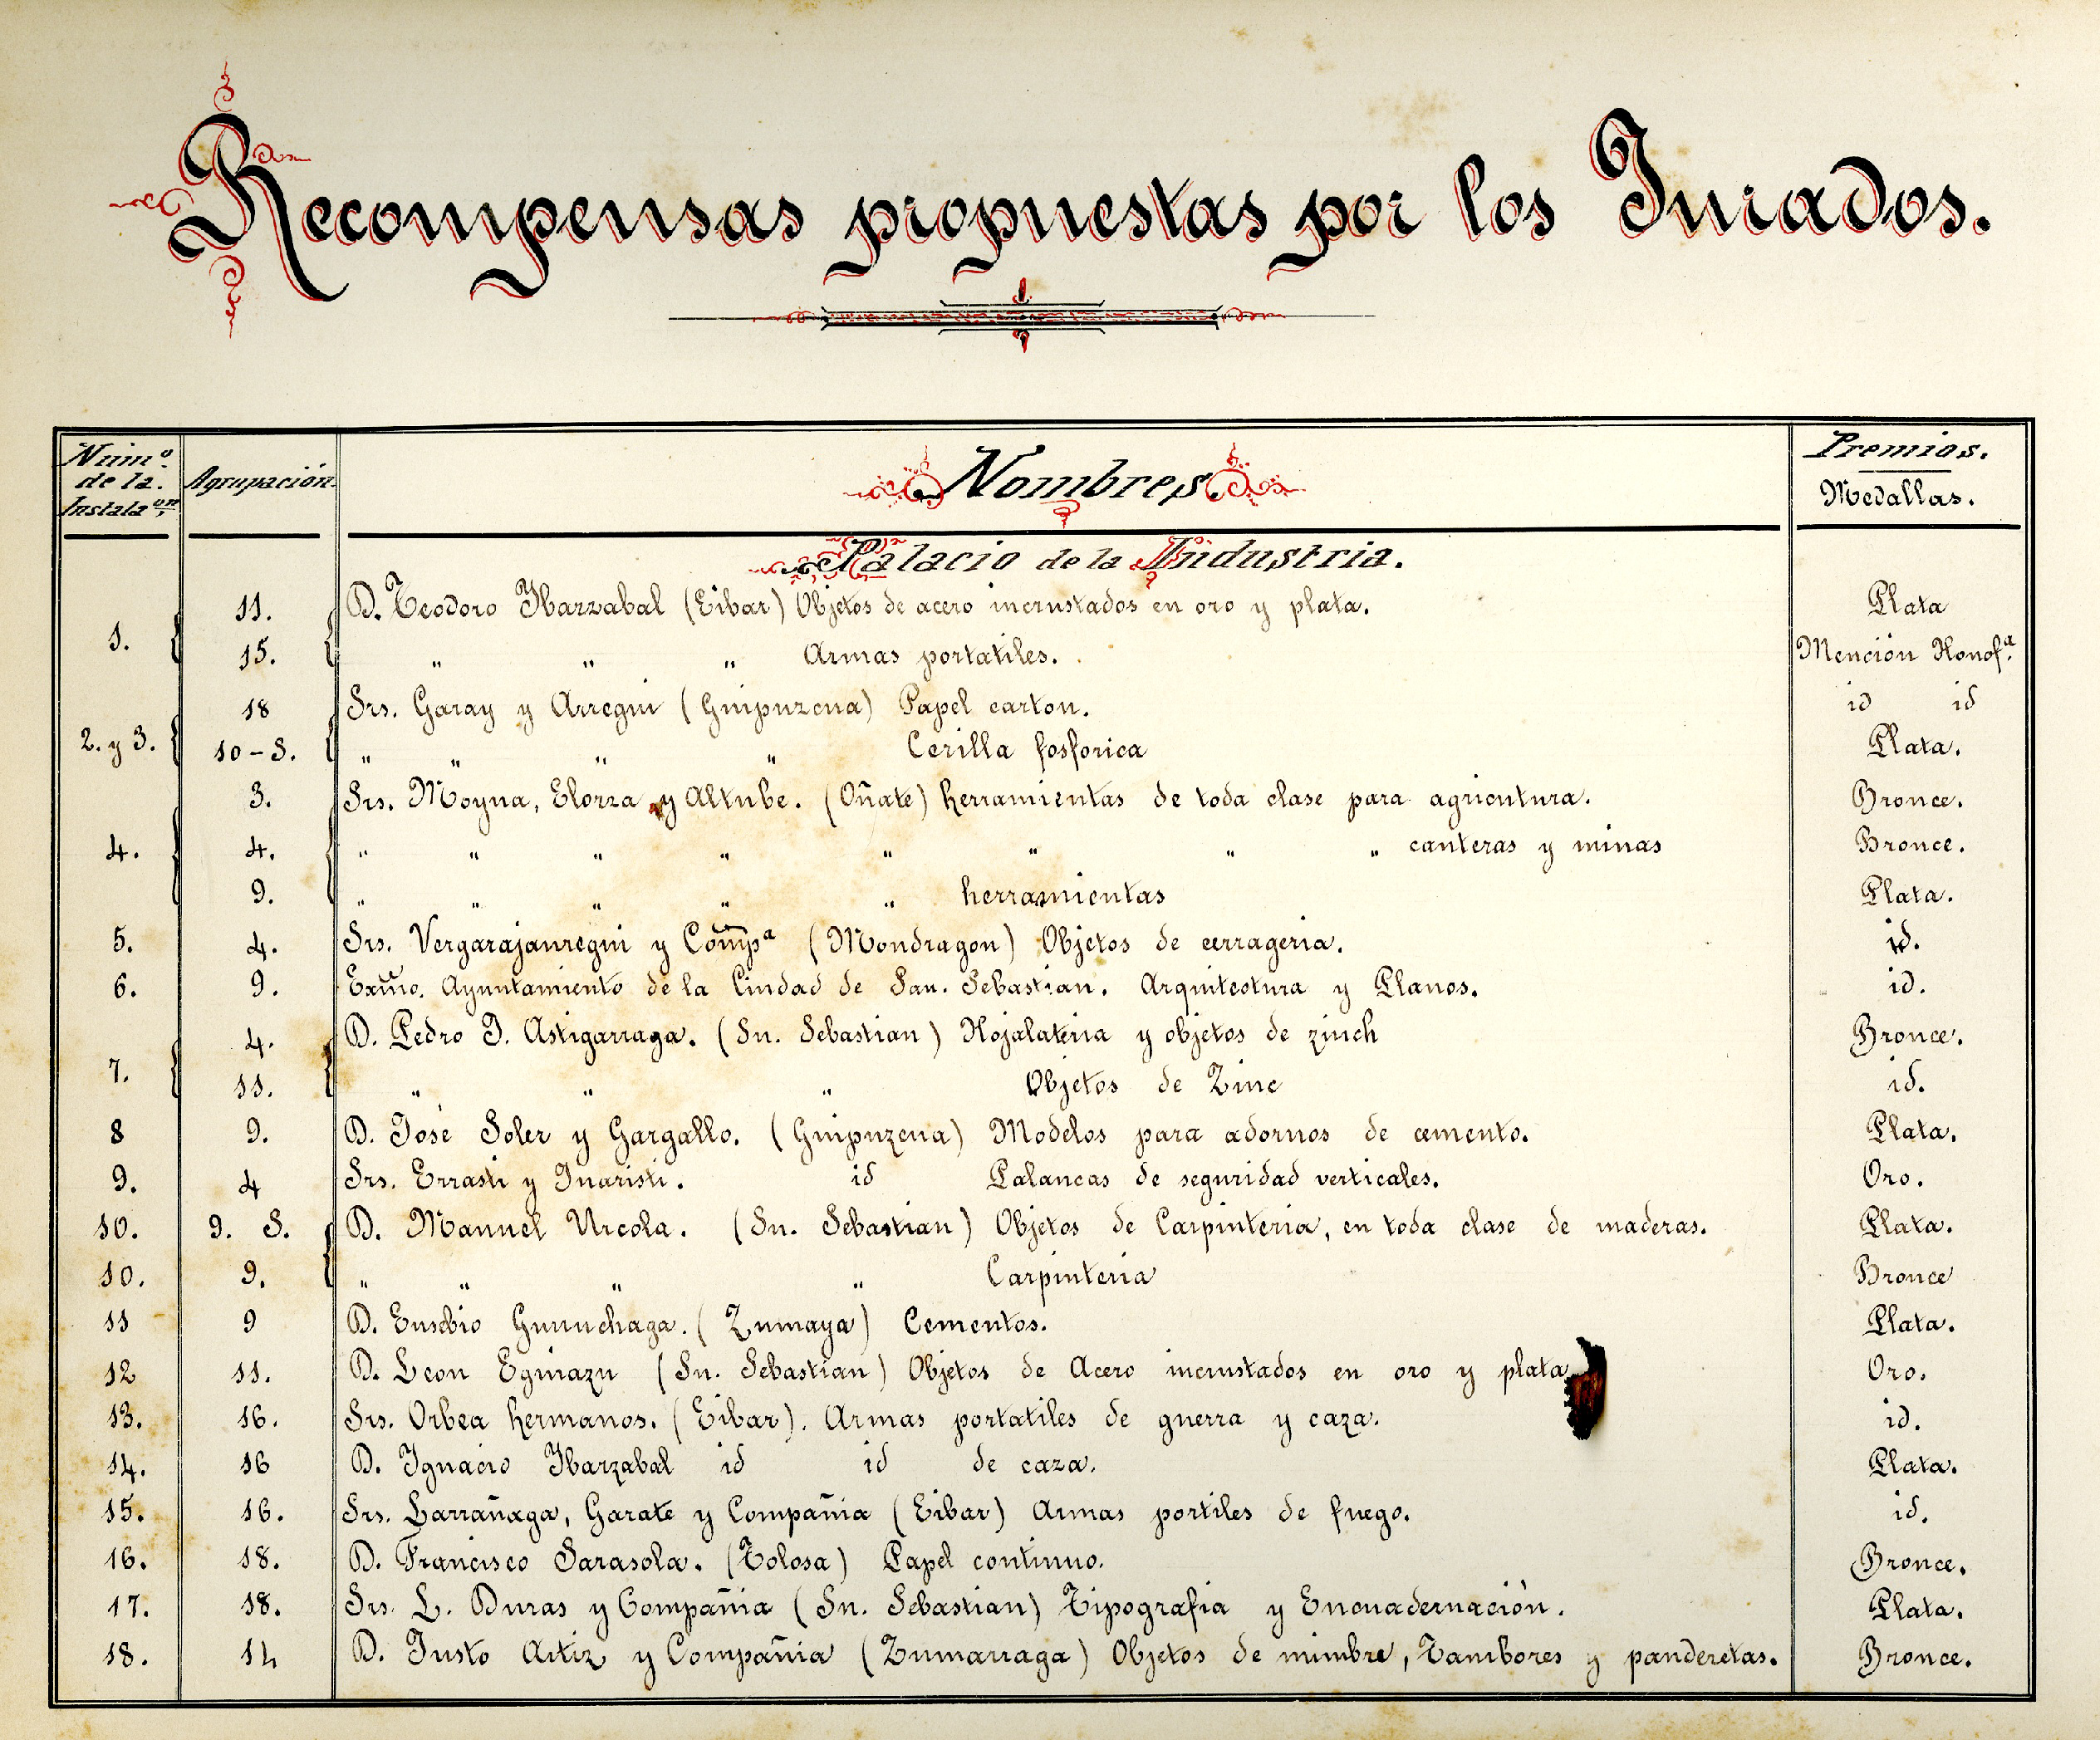 Recompensas propuestas por los Jurados.
Núm.º de la Instalaᵒⁿ. Agrupación. Nombres. Premios. Medallas.
Palacio de la Industria.
1. 11. D. Teodoro Ybarzabal (Eibar) Objetos de acero incrustados en oro y plata. Plata
15. " " " Armas portatiles. Mención Honofᵃ.
2. y 3. 18 Srs. Garay y Arregui (Guipuzcua) Papel carton. id id
10-S. " " " " Cerilla fosforica Plata.
4. 3. Srs. Moyua, Elorza y Altube. (Oñate) herramientas de toda clase para agricutura. Bronce.
4. " " " " " " " " canteras y minas Bronce.
9. " " " " " herramientas Plata.
5. 4. Srs. Vergarajauregui y Compᵃ (Mondragon) Objetos de cerrageria. id.
6. 9. Exmo. Ayuntamiento de la Ciudad de San. Sebastian. Arquitectura y Planos. id.
7. 4. D. Pedro J. Astigarraga. (Sn. Sebastian) Hojalateria y objetos de zinch Bronce.
11. " " " Objetos de Zinc id.
8 9. D. José Soler y Gargallo. (Guipuzcua) Modelos para adornos de cemento. Plata.
9. 4 Srs. Errasti y Inaristi. id Palancas de seguridad verticales. Oro.
10. 9. S. D. Manuel Urcola. (Sn. Sebastian) Objetos de Carpinteria, en toda clase de maderas. Plata.
10. 9. " " " " Carpinteria Bronce
11 9 D. Eusebio (Zumaya) Cementos. Plata.
12 11. D. Leon Eguiazu (Sn. Sebastian) Objetos de Acero incrustados en oro y plata Oro.
13. 16. Srs. Orbea hermanos. (Eibar). Armas portatiles de guerra y caza. id.
14. 16 D. Ygnacio Ybarzabal id id de caza. Plata.
15. 16. Srs. Larrañaga, Garate y Compañia (Eibar) Armas portiles de fuego. id.
16. 18. D. Francisco Sarasola. (Tolosa) Papel continuo. Bronce.
17. 18. Srs. L. Duras y Compañia (Sn. Sebastian) Tipografia y Encuadernación. Plata.
18. 14 D. Justo Artiz y Compañia (Zumarraga) Objetos de mimbre, Tambores y panderetas. Bronce.